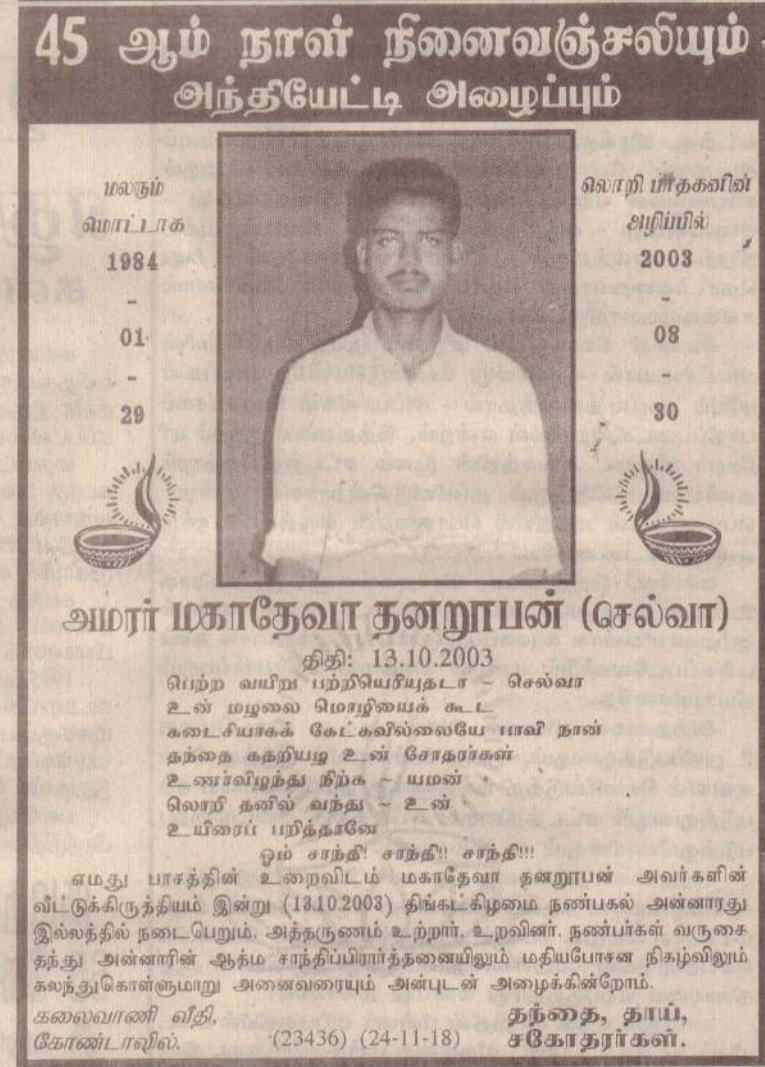 45 ஆம் நாள் நினைவஞ்சலியும்
அந்தியேட்டி அழைப்பும்
மலரும்
மொட்டாக
1984
-
01
-
29
லொறி பாதகனின்
அழிப்பில்
2003
-
08
-
30
அமரர் மகாதேவா தனறூபன் (செல்வா)
திதி: 13.10.2003
பெற்ற வயிறு பற்றியெரியுதடா ~ செல்வா
உன் மழலை மொழியைக் கூட
கடைசியாகக் கேட்கவில்லையே பாவி நான்
தந்தை கதறியழ உன் சோதரர்கள்
உணர்விழந்து நிற்க ~ யமன்
லொறி தனில் வந்து ~ உன்
உயிரைப் பறித்தானே
ஓம் சாந்தி! சாந்தி!! சாந்தி!!!
எமது பாசத்தின் உறைவிடம் மகாதேவா தனறூபன் அவர்களின்
வீட்டுக்கிருத்தியம் இன்று (13.10.2003) திங்கட்கிழமை நண்பகல் அன்னாரது
இல்லத்தில் நடைபெறும். அத்தருணம் உற்றார், உறவினர், நண்பர்கள் வருகை
தந்து அன்னாரின் ஆத்ம சாந்திப்பிரார்த்தனையிலும் மதியபோசன நிகழ்விலும்
கலந்துகொள்ளுமாறு அனைவரையும் அன்புடன் அழைக்கின்றோம்.
கலைவாணி வீதி,
கோண்டாவில்.
(23436) (24-11-18)
தந்தை, தாய்,
சகோதரர்கள்.